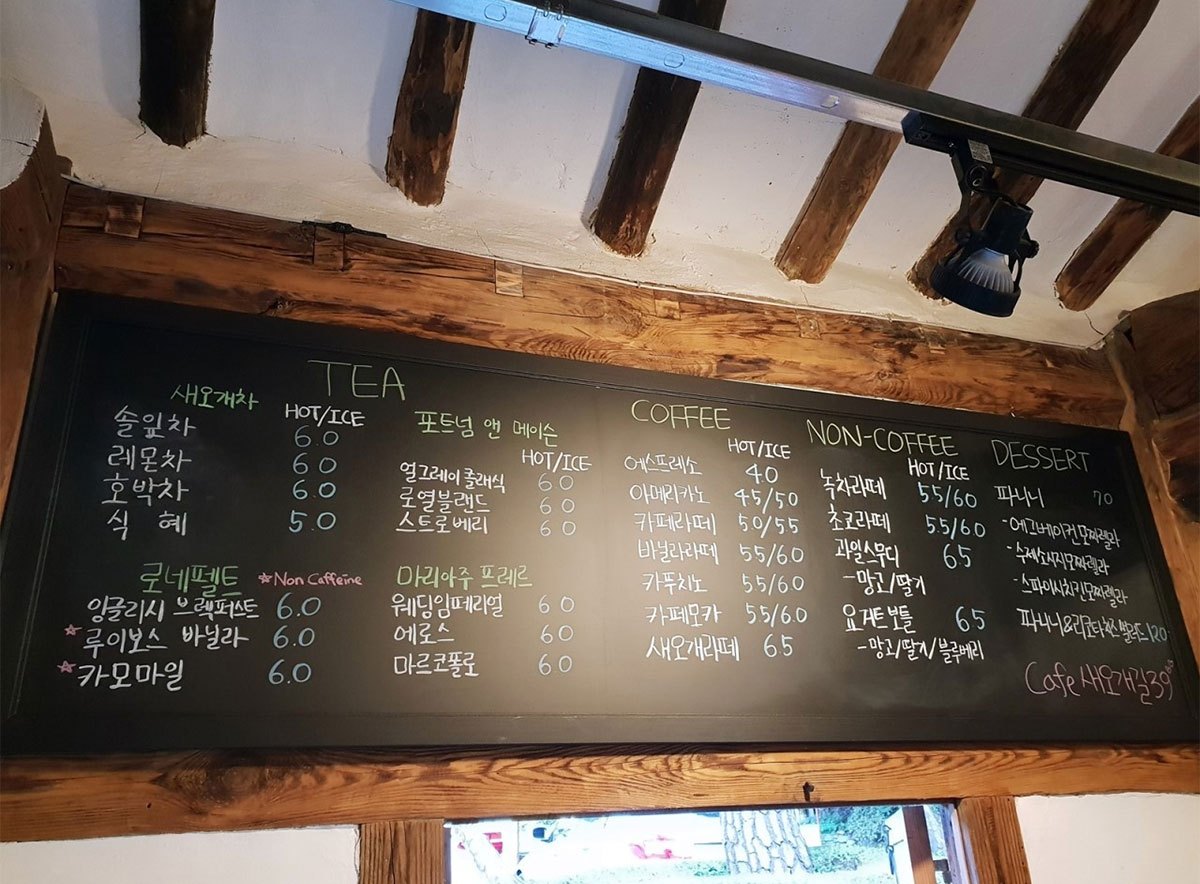 TEA
새오개차
HOT/ICE
솔잎차 6.0
레몬차 6.0
호박차 6.0
식 혜 5.0
로네펠트 *Non Caffeine
잉글리시 브렉퍼스트 6.0
*루이보스 바닐라 6.0
*카모마일 6.0
포트넘 앤 메이슨
HOT/ICE
얼그레이 클래식 6.0
로열블랜드 6.0
스트로베리 6.0
마리아주 프레르
웨딩임페리얼 6.0
에로스 6.0
마르코폴로 6.0
COFFEE
HOT/ICE
에스프레소 4.0
아메리카노 4.5/5.0
카페라떼 5.0/5.5
바닐라라떼 5.5/6.0
카푸치노 5.5/6.0
카페모카 5.5/6.0
새오개라떼 6.5
NON-COFFEE
HOT/ICE
녹차라떼 5.5/6.0
초코라떼 5.5/6.0
과일스무디 6.5
-망고/딸기
요거트보틀 6.5
-망고/딸기/블루베리
DESSERT
파니니 7.0
-에그베이컨모짜렐라
-수제소시지모짜렐라
-스파이시치킨모짜렐라
파니니&리코타치즈샐러드 12.0
Cafe 새오개길39